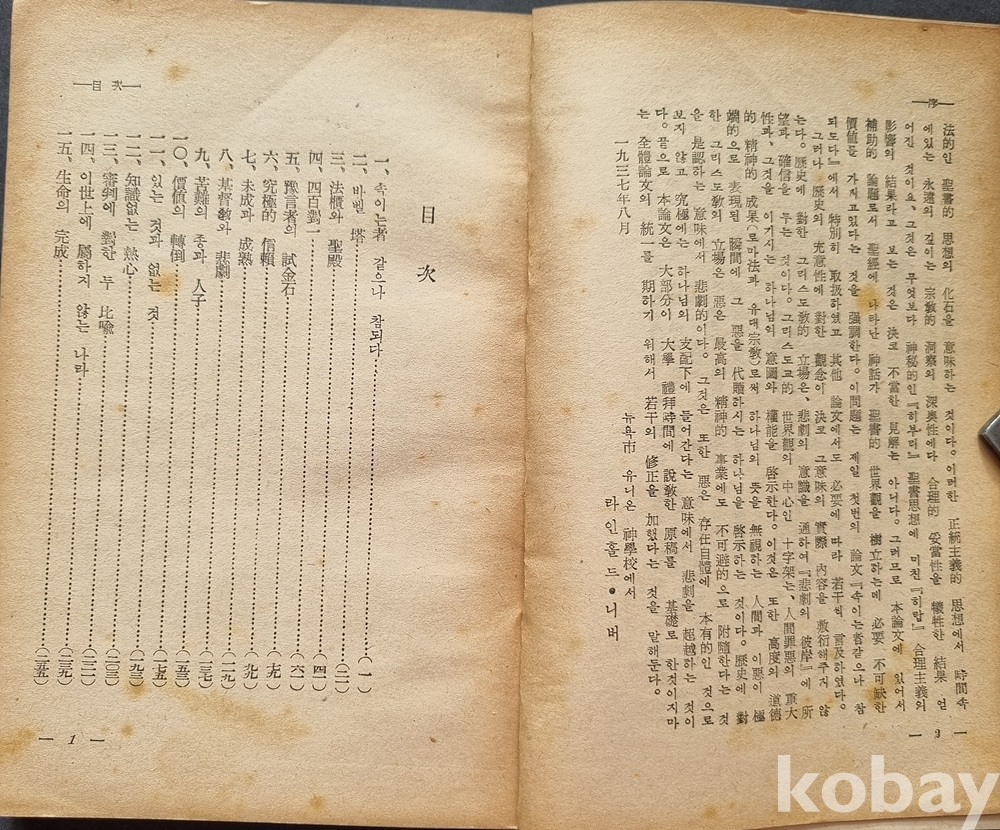 —序—
法的인 聖書的 思想의 化石을 意味하는 것이다. 이러한 正統主義的 思想에서 時間속
에있는 永遠의 깊이는 宗敎的 洞察의 深奧性에다 合理的 妥當性을 犧牲한 結果 얻
어진 것이요, 그것은 무엇보다 神秘的인『히부리』聖書思想에 미친『히랍』合理主義의
影響의 結果라고 보는 것은 決코 不當한 見解는 아니다. 그러므로 本論文에 있어서
補助的 論題로서 聖經에 나타난 神話가 聖書的 世界觀을 樹立하는데 必要 不可缺한
價値를 가지고있다는 것을 强調한다. 이問題는 제일 첫번의 論文『속이는者같으나 참
되도다』에서 特別히 取扱하였고 其他 論文에서도 必要에 따라 若干씩 言及하였다.
그러나 歷史의 充意性에 對한 觀念이 決코 그意味의 實際 內容을 敷衍해주지 않
는다. 歷史에 對한 그리스도敎的 立場은, 悲劇의 意識을 通하여『悲劇의 彼岸』에 所
望과 確信을 두는 것이다. 그리스도교的 世界觀의 中心인 十字架는, 人間罪惡의 重大
性과, 그것을 이기시는 하나님의 意圖와 權能을 啓示한다. 이것은 또한 高度의 道德
的, 精神的 成果(로마法과 유대宗敎)로써 하나님의 뜻을 無視하는 人間과 이惡이 極
端的으로 表現된 瞬間에 그 惡을 代贖하시는 하나님을 啓示하는 것이다. 歷史에 對
한 그리스도敎의 立場은 惡은 最高의 精神的 事業에도 不可避的으로 附隨한다는 것
을 是認하는 意味에서 悲劇的이다. 그것은 또한 惡은 存在自體에 本有的인 것으로
보지 않고 究極에는 하나님의 支配下에 들어간다는 意味에서 悲劇을 超越하는 것이
다. 끝으로 本論文은 大部分이 大學 禮拜時間에 說敎한 原稿를 基礎로 한것이지마
는 全體論文의 統一를 期하기 위해서 若干의 修正을 加했다는 것을 말해둔다.
一九三七年八月
뉴욕市 유니온 神學校에서
라인홀드•니버
— 3 —
—目 次—
目 次
一、속이는者 같으나 참되다……(一)
二、바벨 塔……(二一)
三、法櫃와 聖殿……(四一)
四、四百對一……(六一)
五、豫言者의 試金石……(七九)
六、究極的 信賴……(九九)
七、未成과 成熟……(一一九)
八、基督敎와 悲劇……(一三七)
九、苦難의 종과 人子……(一五三)
一〇、價値의 轉倒……(一七五)
一一、있는 것과 없는 것……(一九三)
一二、知識없는 熱心……(二〇三)
一三、審判에 對한 두 比喩……(二二一)
一四、이世上에 屬하지 않는 나라……(二三九)
一五、生命의 完成……(二五九)
— 1 —
kobay